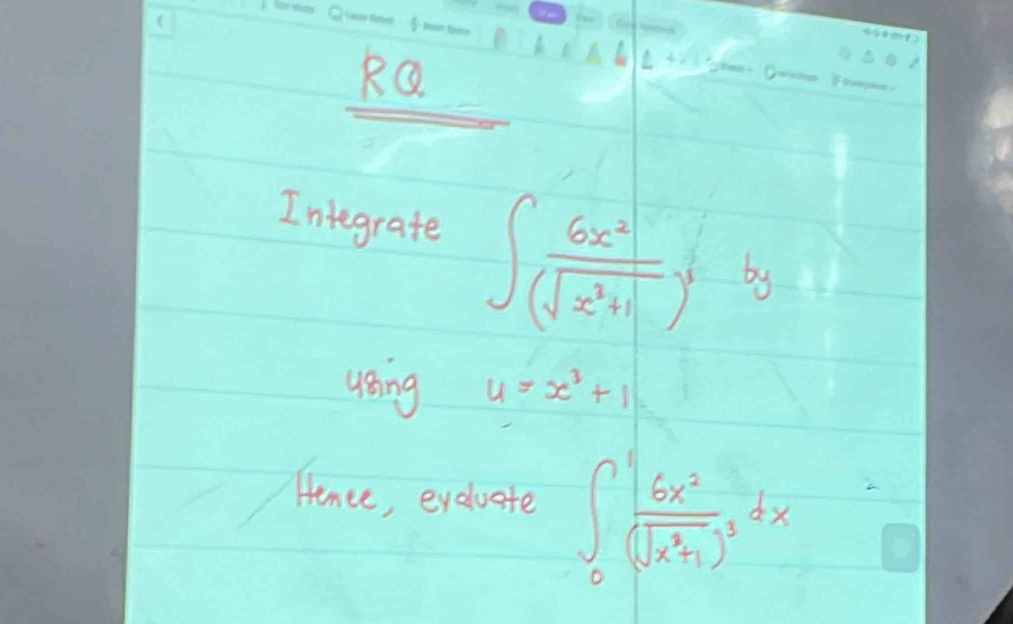 RQ
Integrate ∫ 6x² / (√x³+1)³ by
using u = x³ + 1
Hence, evaluate ∫₀¹ 6x² / (√x³+1)³ dx